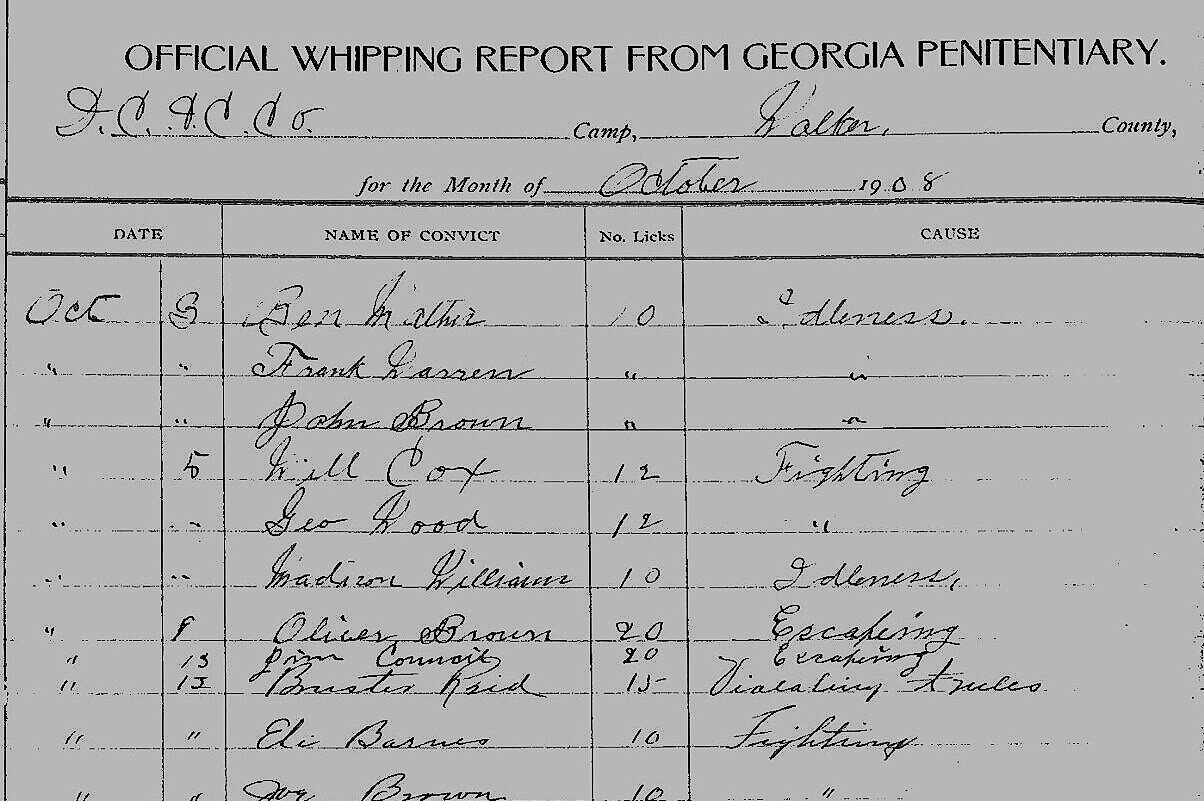 OFFICIAL WHIPPING REPORT FROM GEORGIA PENITENTIARY.
Camp, Walker, County,
for the Month of October 1908
DATE NAME OF CONVICT No. Licks CAUSE
Oct 3 Ben 10 Idleness.
" " Frank Warren " "
" " John Brown " "
" 5 Will Cox 12 Fighting
" " Geo Wood 12 "
" " Madison Williams 10 Idleness,
" 9 Oliver Brown 20 Escapeing
" 13 Jim Council 20 Escapeing
" Buster Reid 15 rules
" " Eli Barnes 10 Fighting
" " Joe Brown 10 "